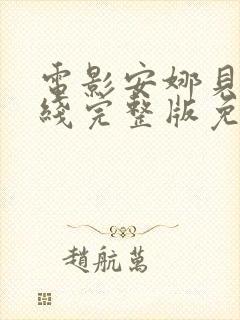 電影安娜見
綫完整版免
趙航萬